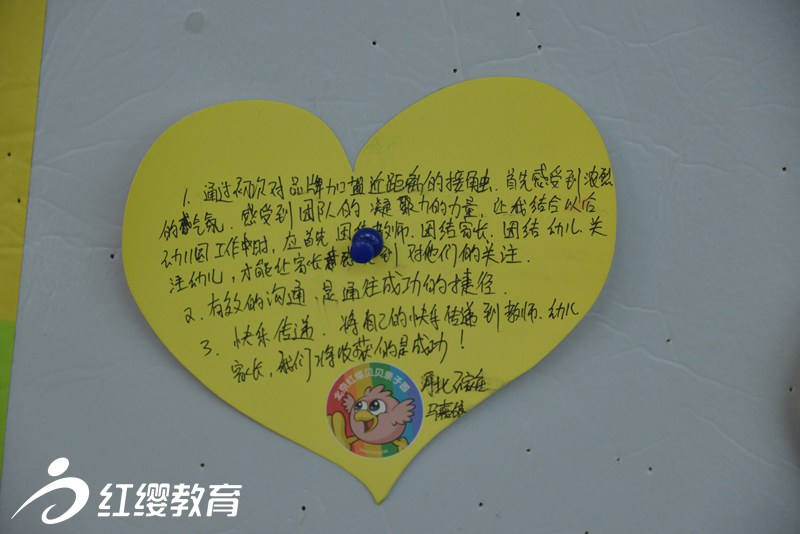 1. 通过初次对品牌加盟近距离的接触.首先感受到浓烈
的气氛.感受到团队的凝聚力的力量,让我结合以后
幼儿园工作中时,应首先团结教师.团结家长.团结幼儿.关
注幼儿,才能让家长感到对他们的关注.
2. 有效的沟通,是通往成功的捷径.
3. 快乐传递.将自己的快乐传递到教师.幼儿
家长,我们将收获的是成功!
河北
北京红缨贝贝亲子园
红缨教育